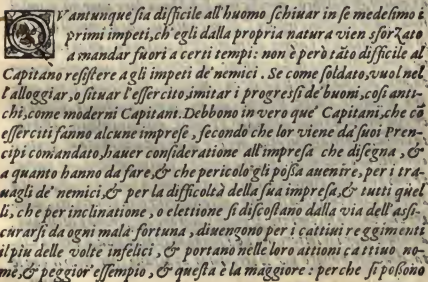 QVantunque ſia difficile all'huomo ſchiuar in ſe medeſimo i
primi impeti, ch'egli dalla propria natura vien sforzato
a mandar fuori a certi tempi: non è però tãto difficile al
Capitano reſiſtere a gli impeti de'nemici. Se come ſoldato, vuol nel
l'alloggiar, o ſituar l'eſſercito, imitar i progreſſi de'buoni, coſi anti-
chi, come moderni Capitani. Debbono in vero que' Capitani, che cõ
eſſerciti fanno alcune impreſe, ſecondo che lor viene da'ſuoi Pren-
cipi comandato, hauer conſideratione all'impreſa che diſegna, &
a quanto hanno da fare, & che pericolo gli poſſa auenire, per i tra-
uagli de' nemici, & per la difficoltà della ſua impreſa, & tutti quel
li, che per inclinatione, o elettione ſi diſcoſtano dalla via dell'aſſi-
curarſi da ogni mala fortuna, diuengono per i cattiui reggimenti
il piu delle volte infelici, & portano nelle loro attioni cattiuo no-
me, & peggior'eſſempio, & queſta è la maggiore: perche ſi poſſono